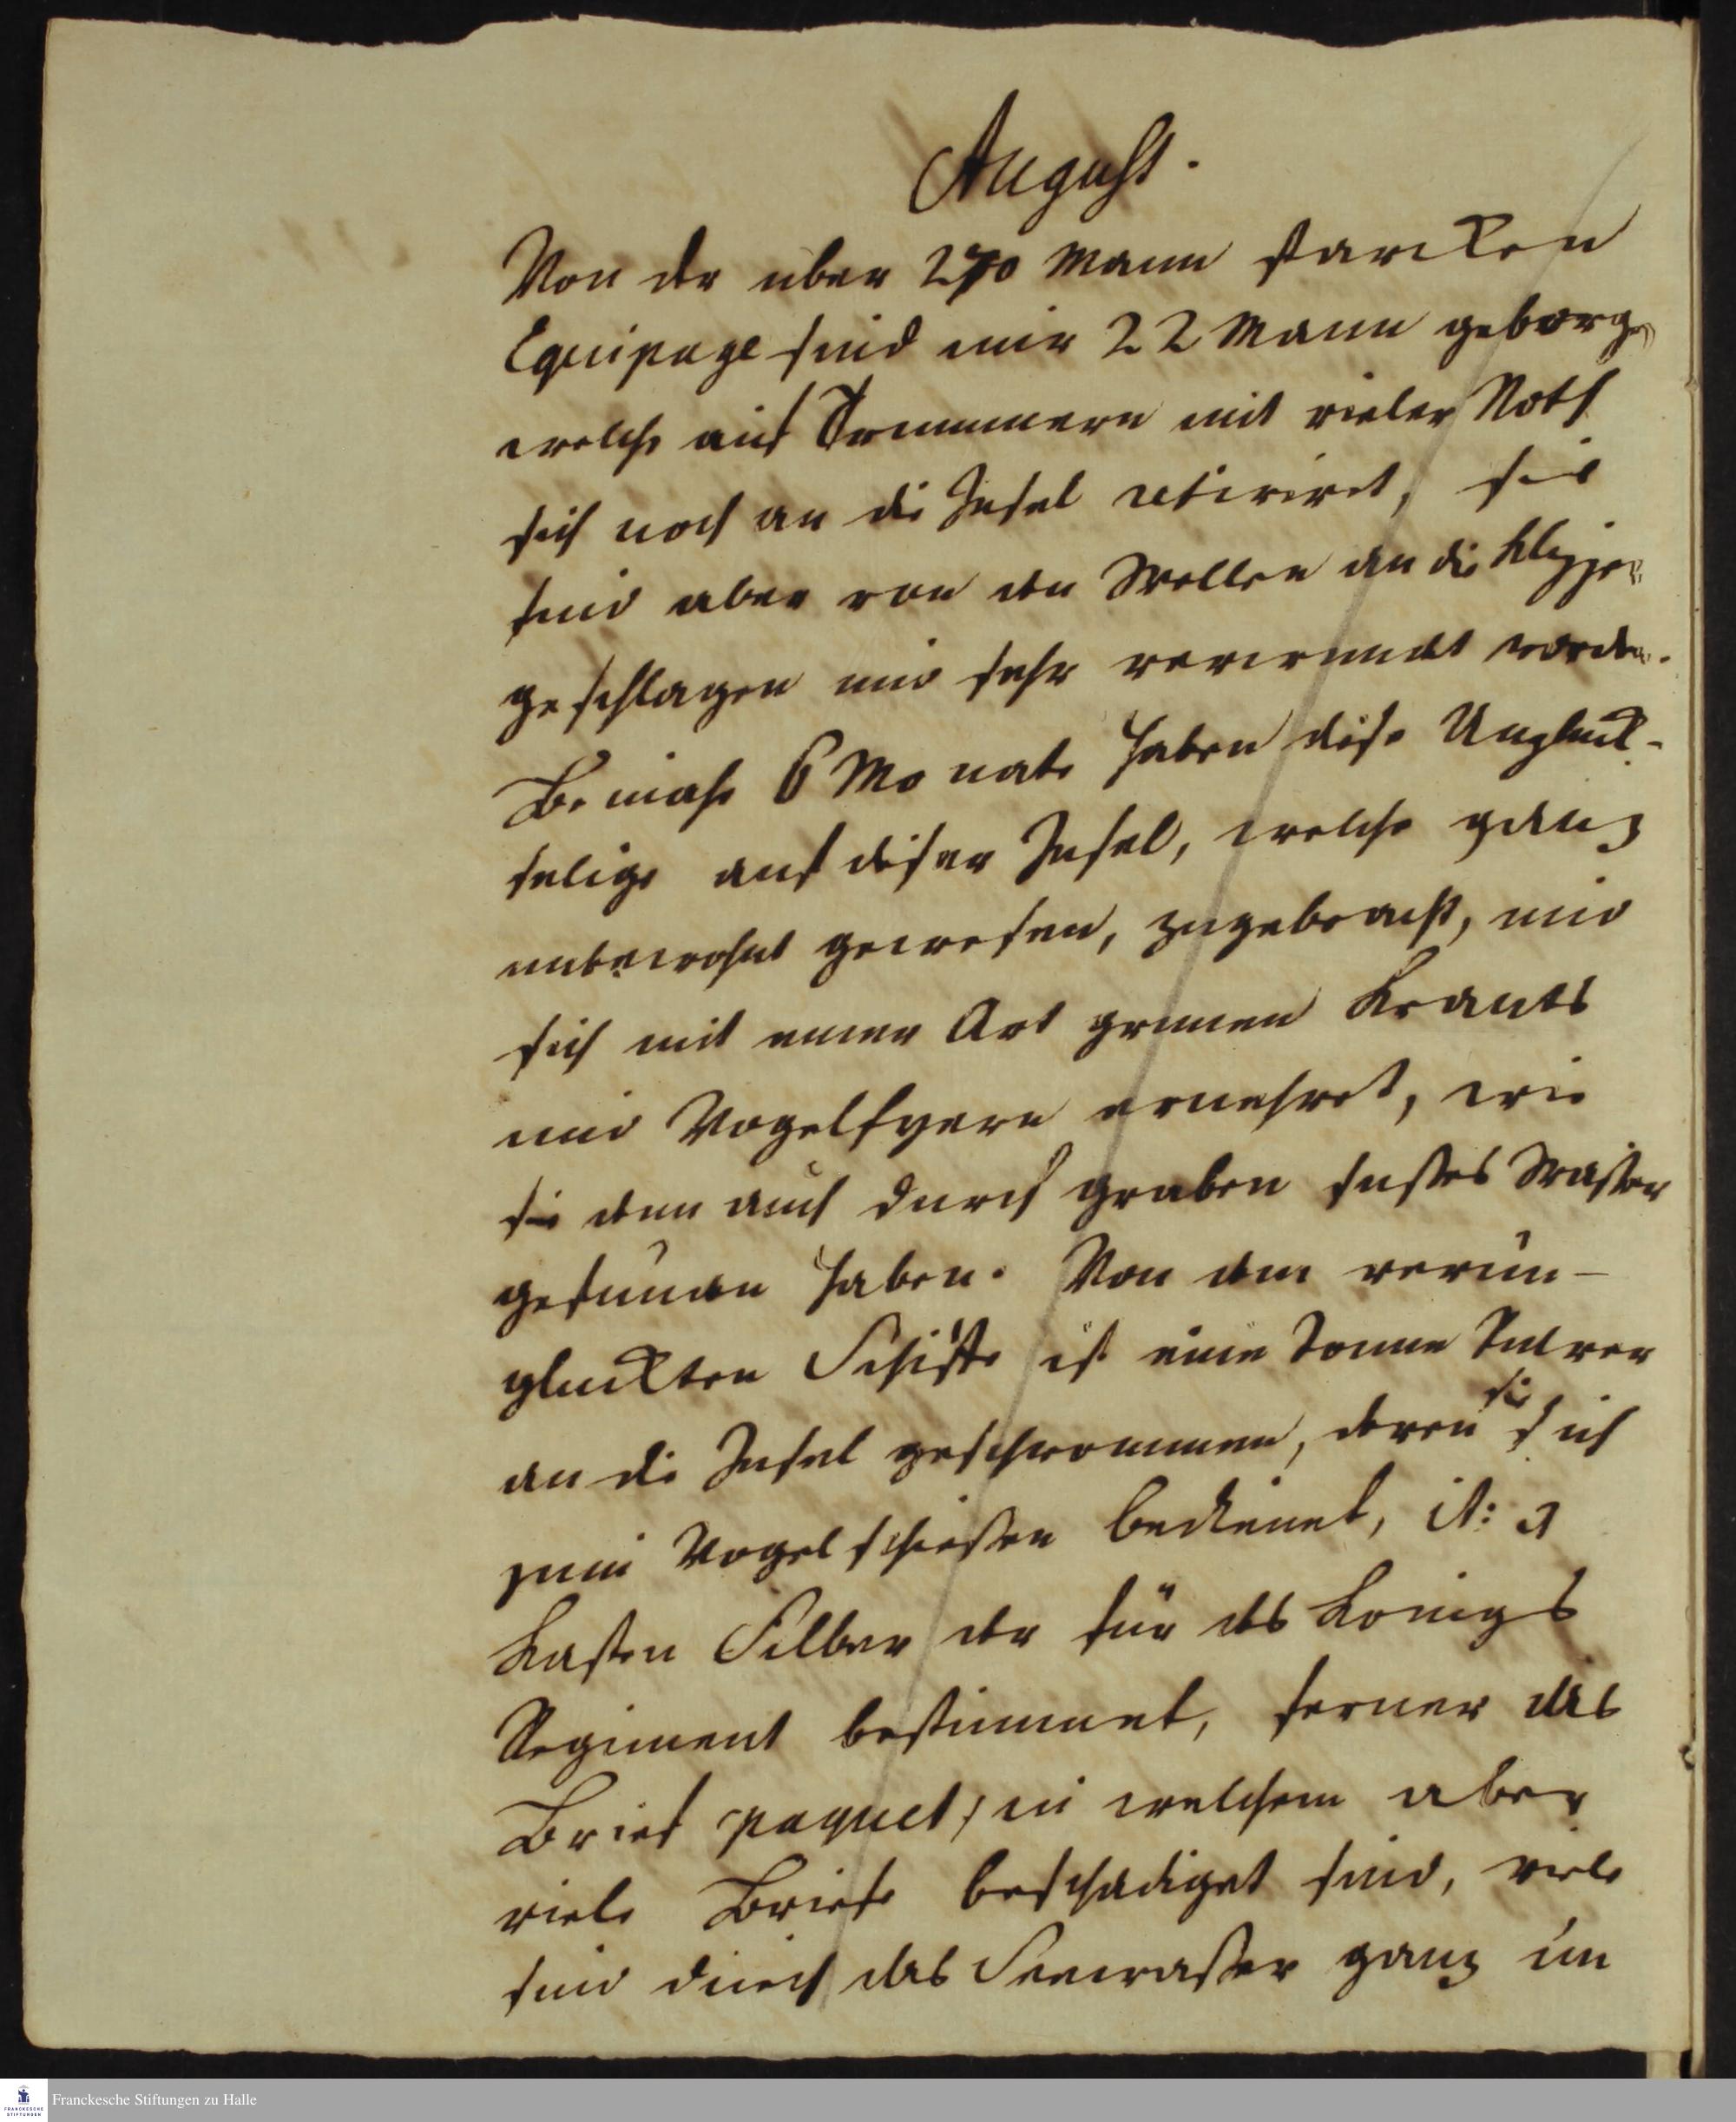 August.
Von der über 270 Mann starcken
Equipage sind nur 22 Mann geborgen
welche auf Trummern mit vieler Noth
sich noch an die Insel retiriret, sie
sind aber von den Wellen an die Klippen
geschlagen und sehr verwundet worden.
Beinahe 6 Monate haben diese Unglück-
selige auf dieser Insel, welche ganz
unbewohnt gewesen, zugebracht, und
sich mit einer Art grunen Krauts
und Vogelfyern ernehret, wie
sie denn auch durch graben susses Wasser
gefunden haben. Von dem verun-
gluckten Schiffe ist eine Tonne Pulver
an die Insel geschwommen, deren sie sich
zum Vogelschiessen bedienet, it: 2
Kasten Silber der für des Konigs
Regiment bestimmet, ferner das
Brief paquet, in welchem aber
viele Briefe beschadiget sind, viele
sind durch das Seewasser ganz un
Franckesche Stiftungen zu Halle
FRANCKESCHE
STIFTUNGEN